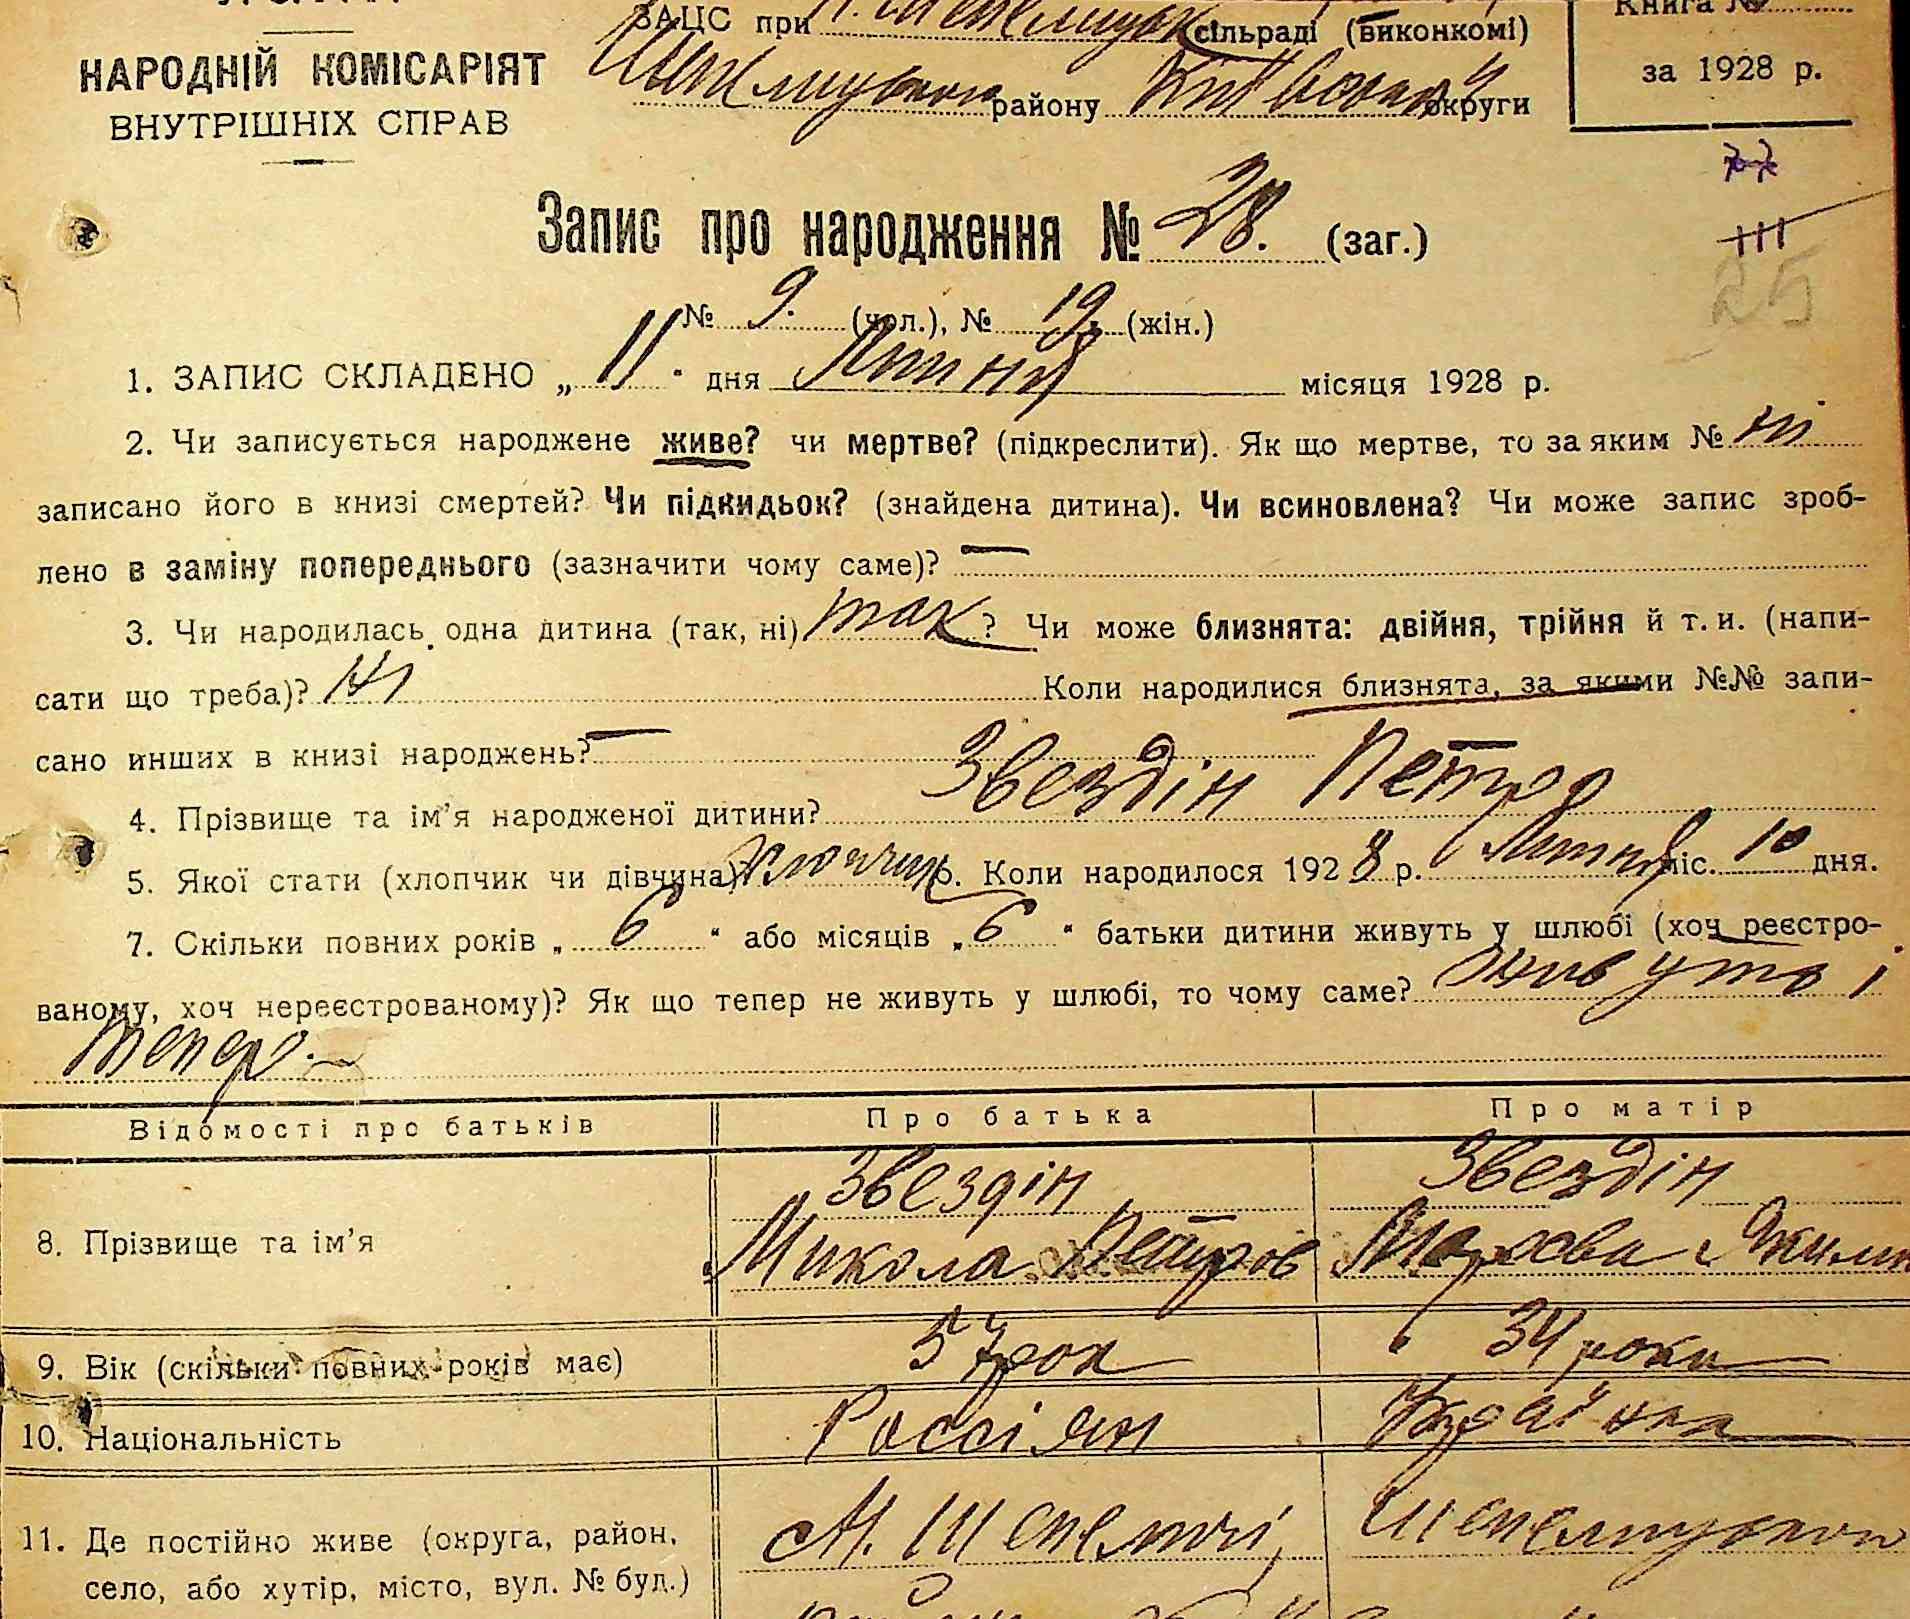 ЗАЦС при М. Шепелицьк сільраді (виконкомі)
Книга №
НАРОДНІЙ КОМІСАРІЯТ
ВНУТРІШНІХ СПРАВ
району Київської округи
за 1928 р.
77
111
25
Запис про народження № 28. (заг.)
№ 9. (чол.), № 19. (жін.)
1. ЗАПИС СКЛАДЕНО „ 11 “ дня Липня місяця 1928 р.
2. Чи записується народжене живе? чи мертве? (підкреслити). Як що мертве, то за яким № ні
записано його в книзі смертей? Чи підкидьок? (знайдена дитина). Чи всиновлена? Чи може запис зроб-
лено в заміну попереднього (зазначити чому саме)? —
3. Чи народилась одна дитина (так, ні) так ? Чи може близнята: двійня, трійня й т. и. (напи-
сати що треба)? Ні Коли народилися близнята, за якими №№ запи-
сано инших в книзі народжень? —
4. Прізвище та ім’я народженої дитини? Звездін Петро
5. Якої стати (хлопчик чи дівчина)? Хлопчик 6. Коли народилося 1928 р. Липня міс. 10 дня.
7. Скільки повних років „ 6 “ або місяців „ 6 “ батьки дитини живуть у шлюбі (хоч реєстро-
ваному, хоч нереєстрованому)? Як що тепер не живуть у шлюбі, то чому саме? живуть і
тепер.
Відомості про батьків Про батька Про матір
Звездін Звездін
8. Прізвище та ім’я
Микола Петров
9. Вік (скільки повних років має) 57 рок 34 роки
10. Національність Россіян Українка
11. Де постійно живе (округа, район,
село, або хутір, місто, вул. № буд.)
М. Шепеличі,